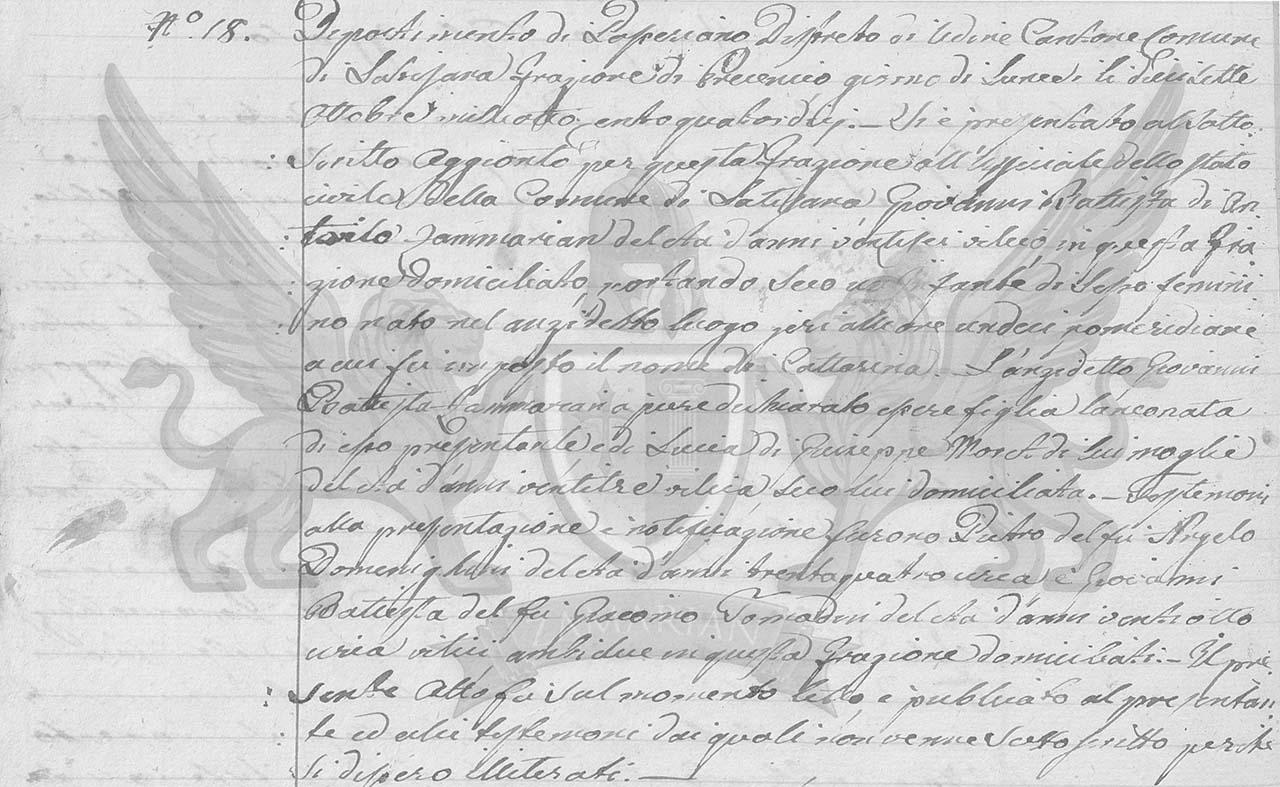 N.o 18.
Dipartimento di Passeriano Distreto di Udine Cantone Comune
di Latisana frazione di Precenico giorno di Lunedi li diecisette
Ottobre mille otto cento quatordeci. — Si è presentato al sotto
scritto Aggionto per questa frazione all'Ufficiale dello stato
civile della Comune di Latisana Giovanni Battista di An
tonio Zammarian dell'età d'anni ventisei vilico, in questa fra
zione domiciliato, portando seco un infante di sesso femini
no nato nel anzidetto luogo jeri alle ore undeci pomeridiane
a cui fu imposto il nome di Cattarina. — L'anzidetto Giovanni
Battista Zammarian a pure dichiarato essere figlia la neonata
di esso presentante e di Lucia di Giuseppe di lui moglie
dell'età d'anni ventitre vilica seco lui domiciliata. — Testemoni
alla presentazione e notificazione furono Pietro del fù Angelo
Domenighini dell'età d'anni trentaquatro circa e Giovanni
Battista del fù Giacomo Tomadini dell'età d'anni ventiotto
circa vilici ambidue in questa frazione domiciliati. — Il pre
sente Atto fù sul momento letto e publicato al presentan
te ed alli testemoni dai quali non venne sottoscritto perche
si dissero illiterati. —